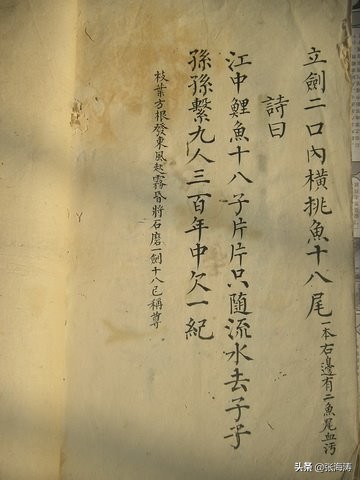 立劍二口內橫挑魚十八尾一本右邊有二魚尾血污
詩曰
江中鯉魚十八子片片只隨流水去子子
孫孫繫九人三百年中欠一紀
枝葉方根發東風起霧昏將石磨一劍十八已稱尊
头条 @张海涛